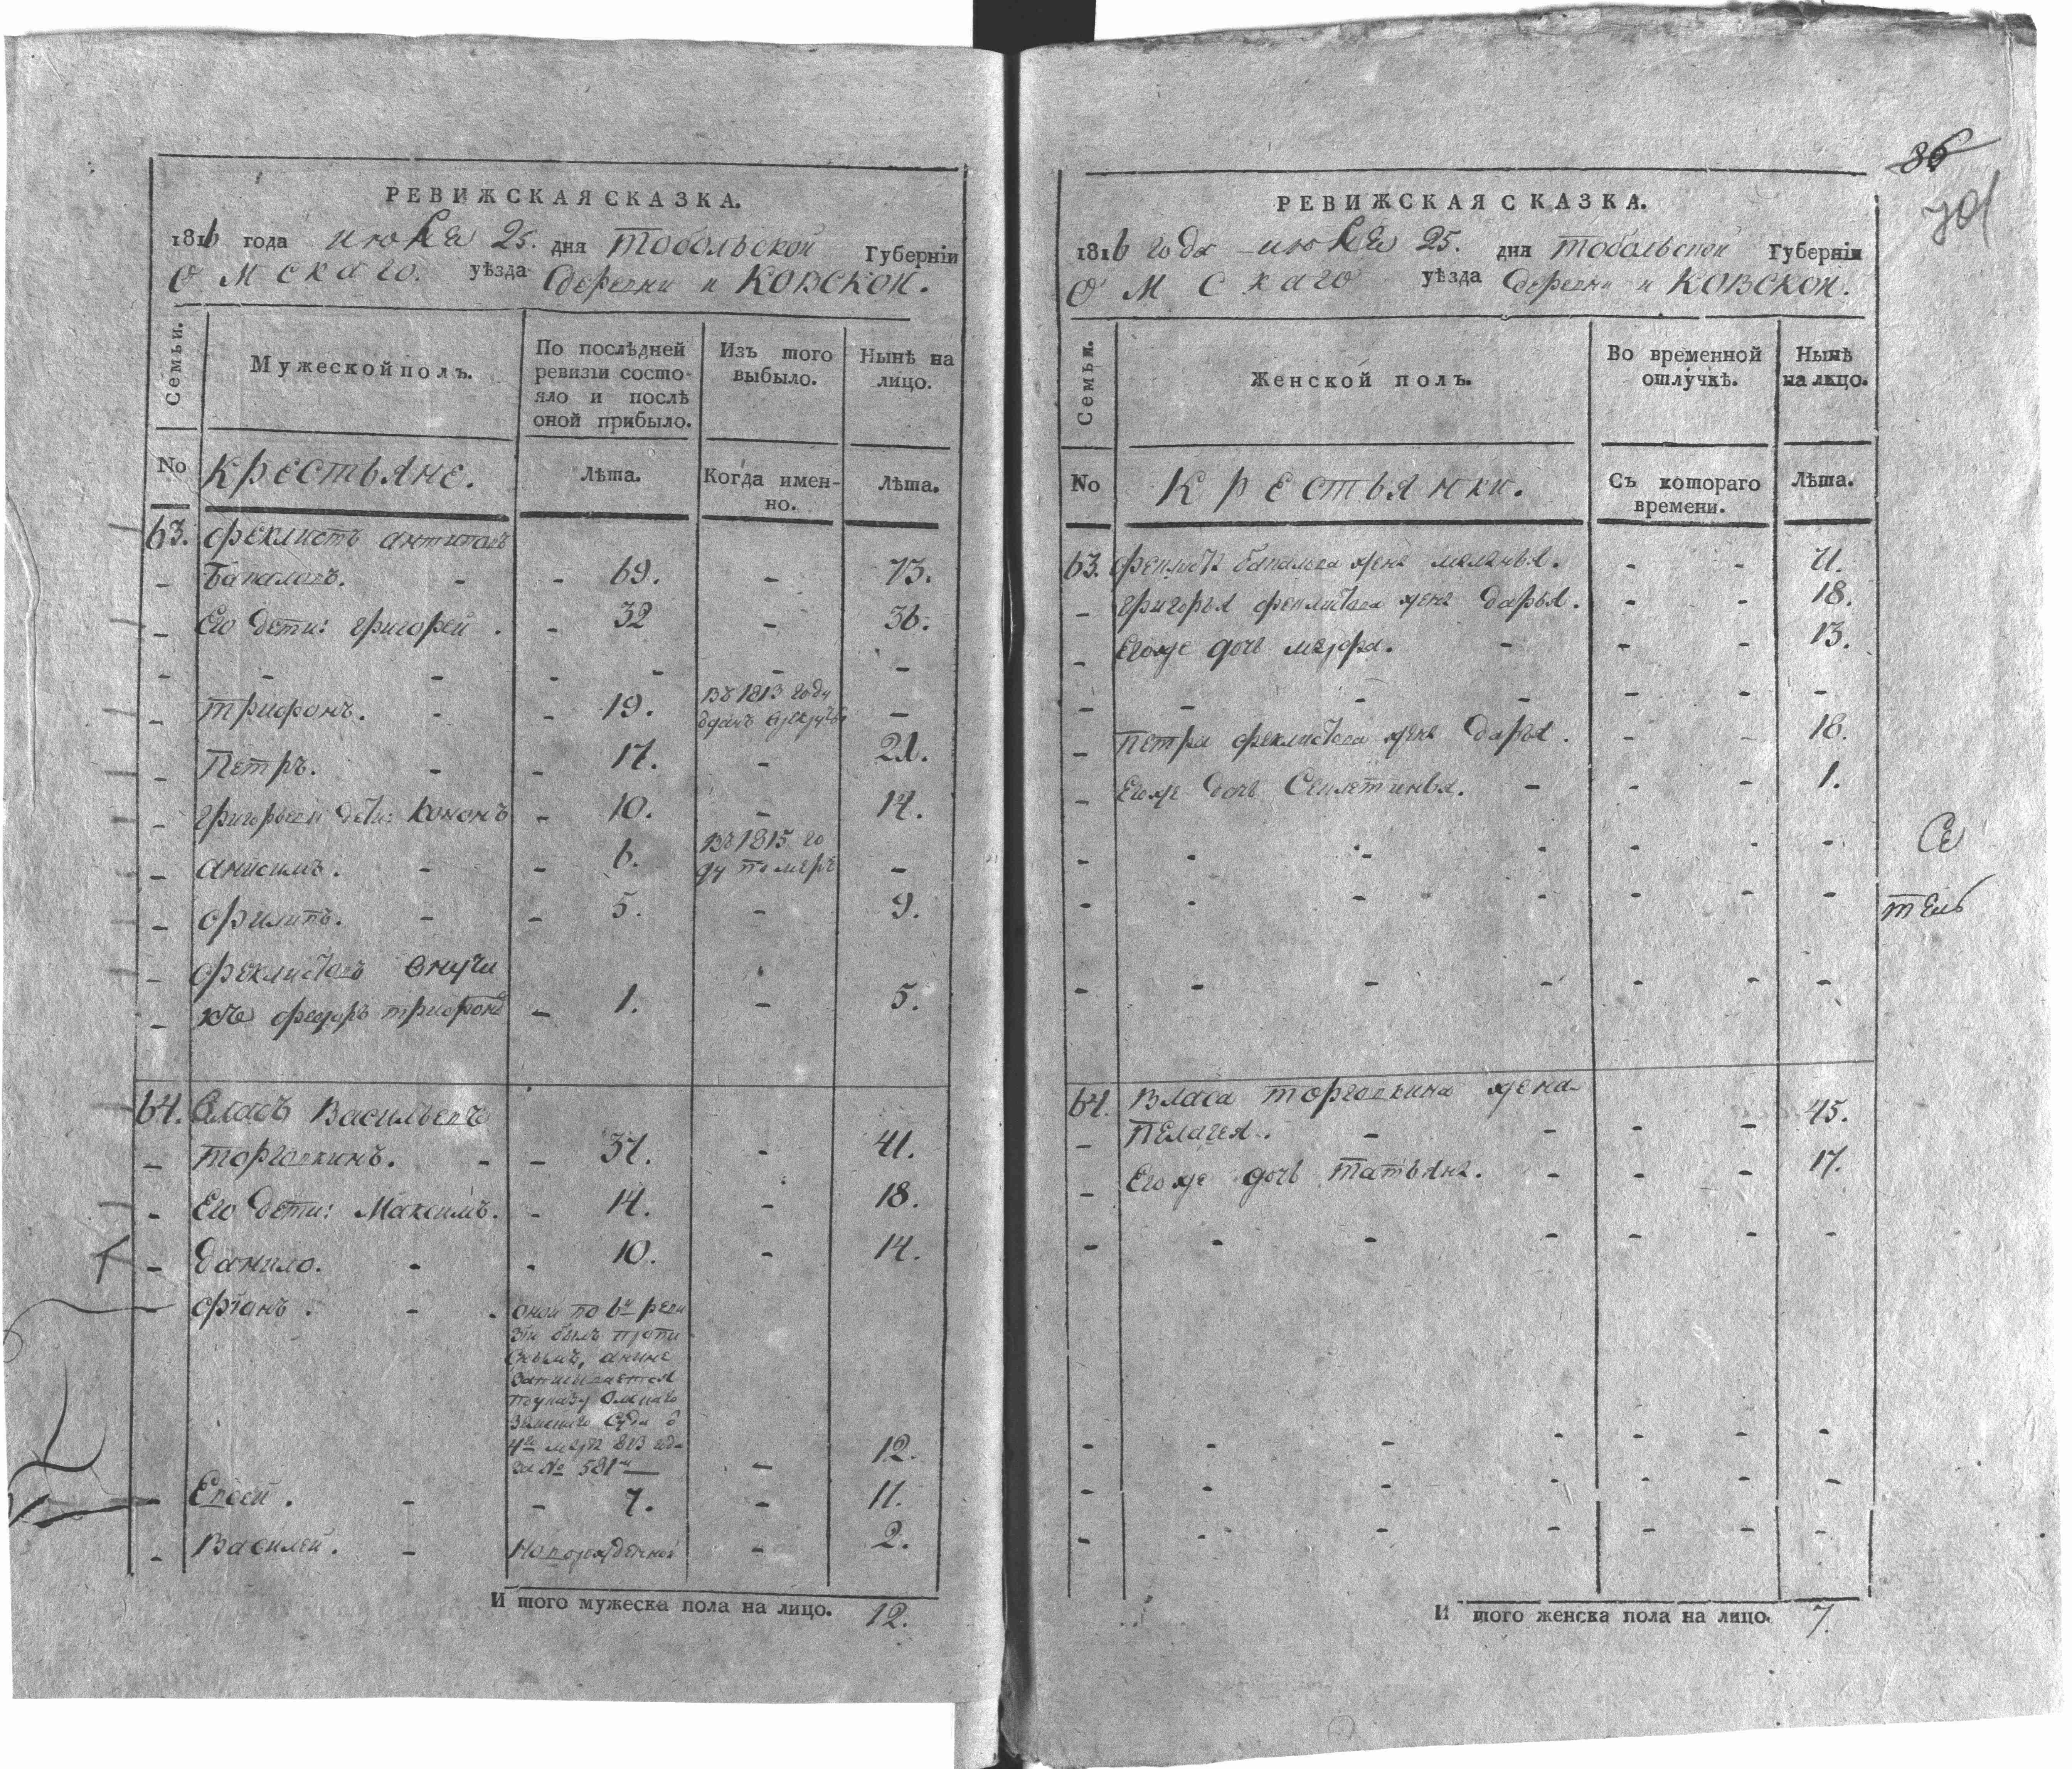 РЕВИЖСКАЯ СКАЗКА.
1816 года июня 25. дня Тобольской Губернiи
Омскаго. уѣзда деревни иковской.
Семьи.
Мужеской полъ.
По послѣдней ревизiи состо-
яло и послѣ оной прибыло.
Изъ того выбыло.
Нынѣ на лицо.
No
Крестьяне.
Лѣта.
Когда имен-
но.
Лѣта.
63. феклистъ антиповъ
Бакаловъ. - - 69. - 73.
Его дети: григорей. - 32 - 36.
трифонъ. - - 19. въ 1813 году отданъ врекруты -
Петръ. - - 17. - 21.
григорьевы дети: кононъ - 10. - 14.
анисимъ. - - 6. въ 1815 го
ду померъ -
филипъ. - - 5. - 9.
феклистовъ внучи
къ федоръ трифоновъ - 1. - 5.
64. власъ Васильевъ
торговкинъ. - - 37. - 41.
Его дети: Максимъ. - 14. - 18.
данило. - - 10. - 14.
фрiанъ. - - оной по 6й реви
зiи былъ пропи
снымъ, аныне
записывается
поуказу омскаго
земскаго суда о
4го 813 года
за No 581м - 12.
Евсей. - - 7. - 11.
Василей. - Новорожденной - 2.
И того мужеска пола на лицо. 12.
86
701
РЕВИЖСКАЯ СКАЗКА.
1816 года июня 25. дня тобольской Губернiи
Омскаго уѣзда деревни иковской.
Семьи.
Женской полъ.
Во временной отлучкѣ.
Нынѣ на лицо.
No
Крестьянки.
Съ котораго времени.
Лѣта.
63. феклиста бакалова жена меланья. - - 71.
григорья феклистова жена дарья. - - 18.
Егоже дочь марфа. - - - 13.
Петра феклистова жена дарья. - - 18.
Егоже дочь Секлетинья. - - - 1.
Се
тель
64. Власа торговкина жена
Пелагея. - - - - 45.
Егоже дочь татьяна. - - - 17.
И того женска пола на лицо. 7.